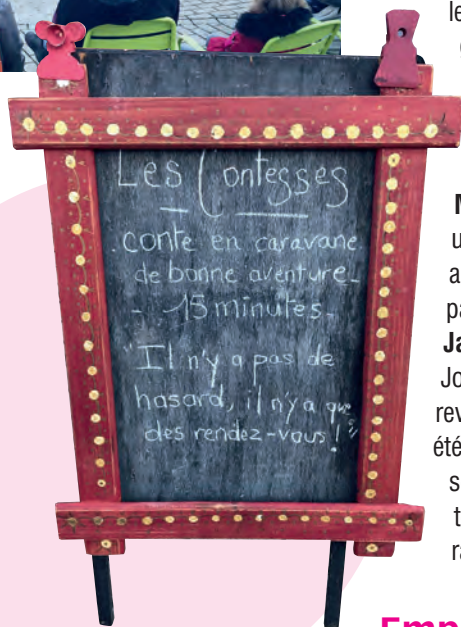 Les Contesses
conte en caravane
de bonne aventure_
- 15 minutes-
"Il n'y a pas de
hasard, il n'y a que
des rendez-vous!"
le
M
u
a
pa
Ja
Jo
rev
été
s
t
ra
Emp